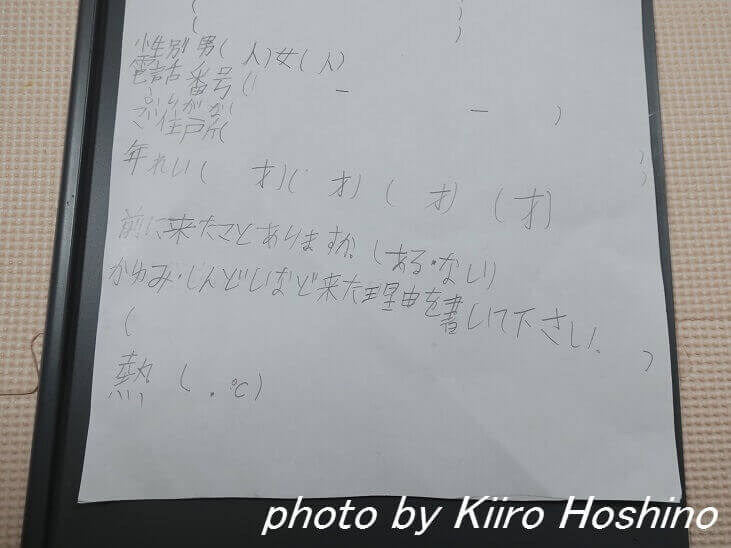 (　　　)
(　　　)
性別 男(　人)女(　人)
電話番号(　　ー　　ー　　)
ふりがな
ご住所(　　　)
年れい(　才)(　才)(　才)(才)
前に来たことありますか。(ある・ない)
かゆみ・しんどいなど来た理由を書いて下さい。
(　　　)
熱(　.℃)
photo by Kiiro Hoshino